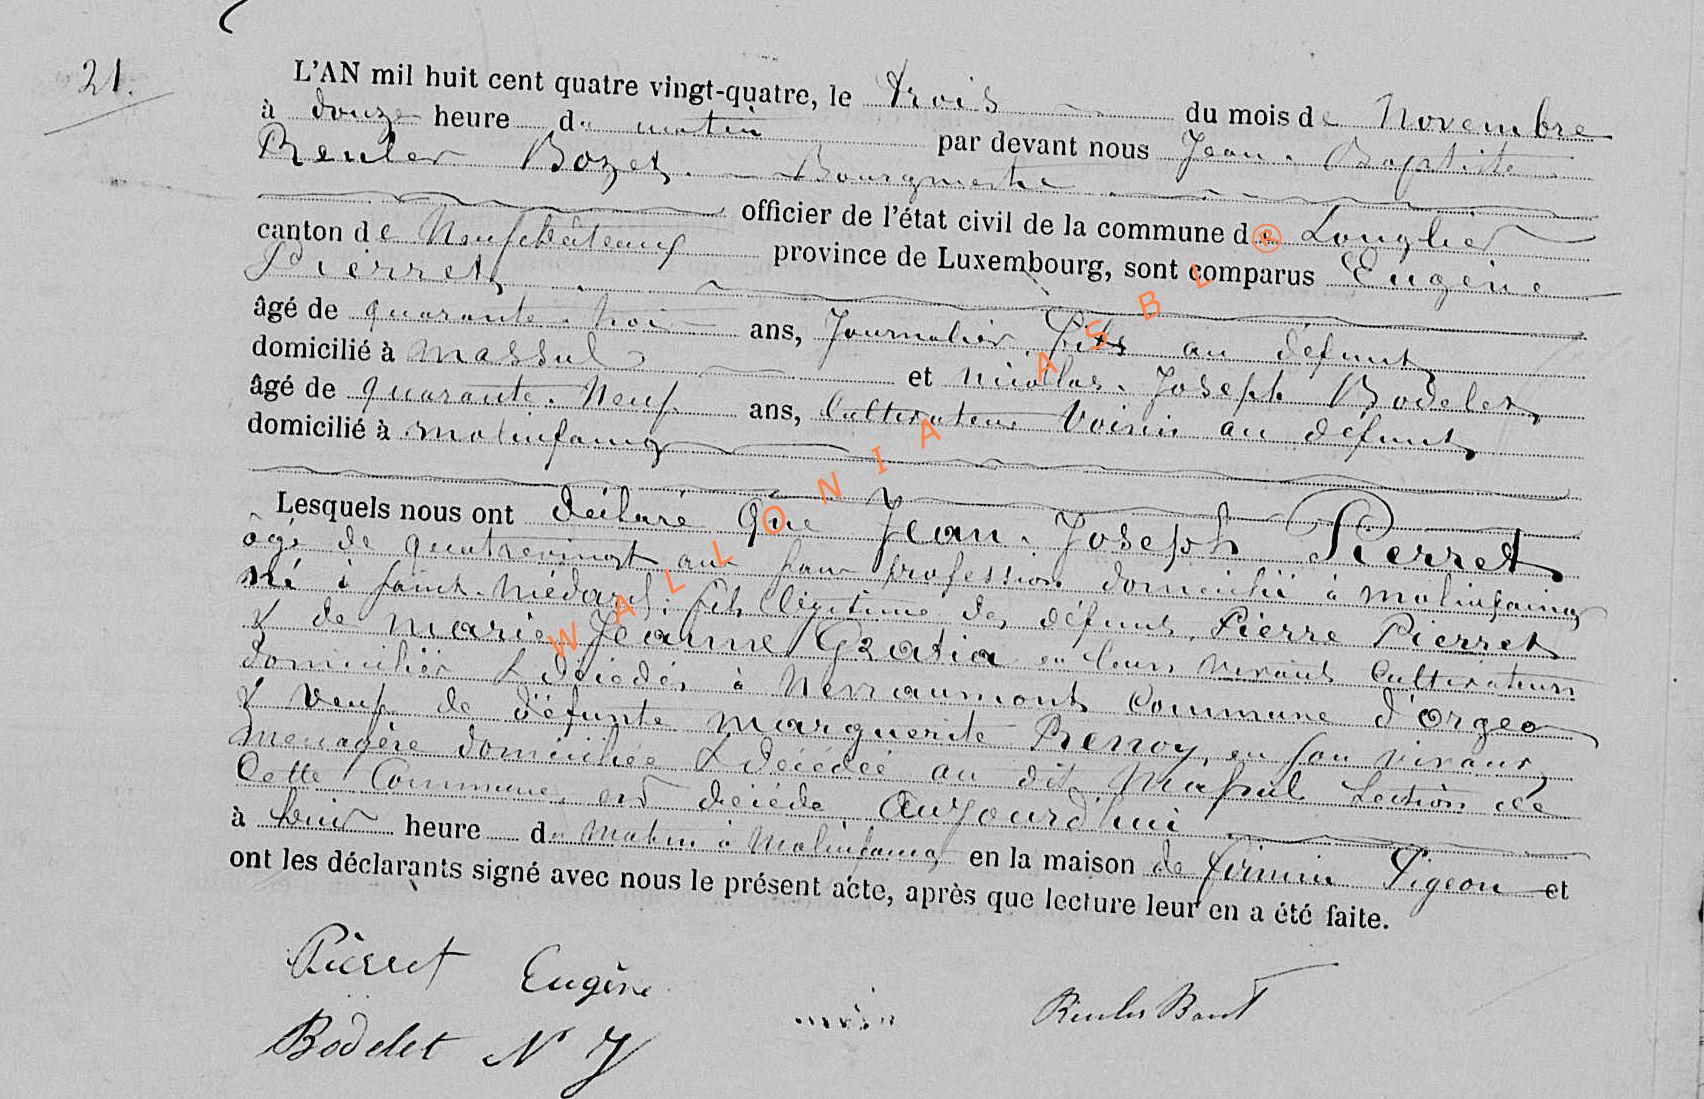 21.
L'AN mil huit cent quatre vingt-quatre, le trois du mois de Novembre
à douze heure du matin par devant nous Jean Baptiste
Reuler Bozet Bourgmestre
officier de l'état civil de la commune de Longlier
canton de Neufchâteau province de Luxembourg, sont comparus Eugène
Pierret
âgé de quarante trois ans, Journalier fils au défunt
domicilié à Massul et Nicollas Joseph Bodelet
âgé de quarante Neuf ans, Cultivateur Voisin au défunt
domicilié à Molinfaing
Lesquels nous ont déclaré que Jean Joseph Pierret
âgé de quatrevingt ans sans profession domicilié à Molinfaing
né à Saint Médard fils légitime des défunts Pierre Pierret
& de Marie Jeanne Gratia en leurs vivants Cultivateurs
domiciliés & décédés à Nevraumont Commune d'Orgeo
& veuf de défunte Marguerite Renoy, en son vivant
ménagère domiciliée & décédée au dit Massul Section de
Cette Commune, est décédé Aujourd'hui
à huit heure du matin à Molinfaing en la maison de firmin Pigeon et
ont les déclarants signé avec nous le présent acte, après que lecture leur en a été faite.
Pierret Eugène
Bodelet N J
WALLONIA ASBL